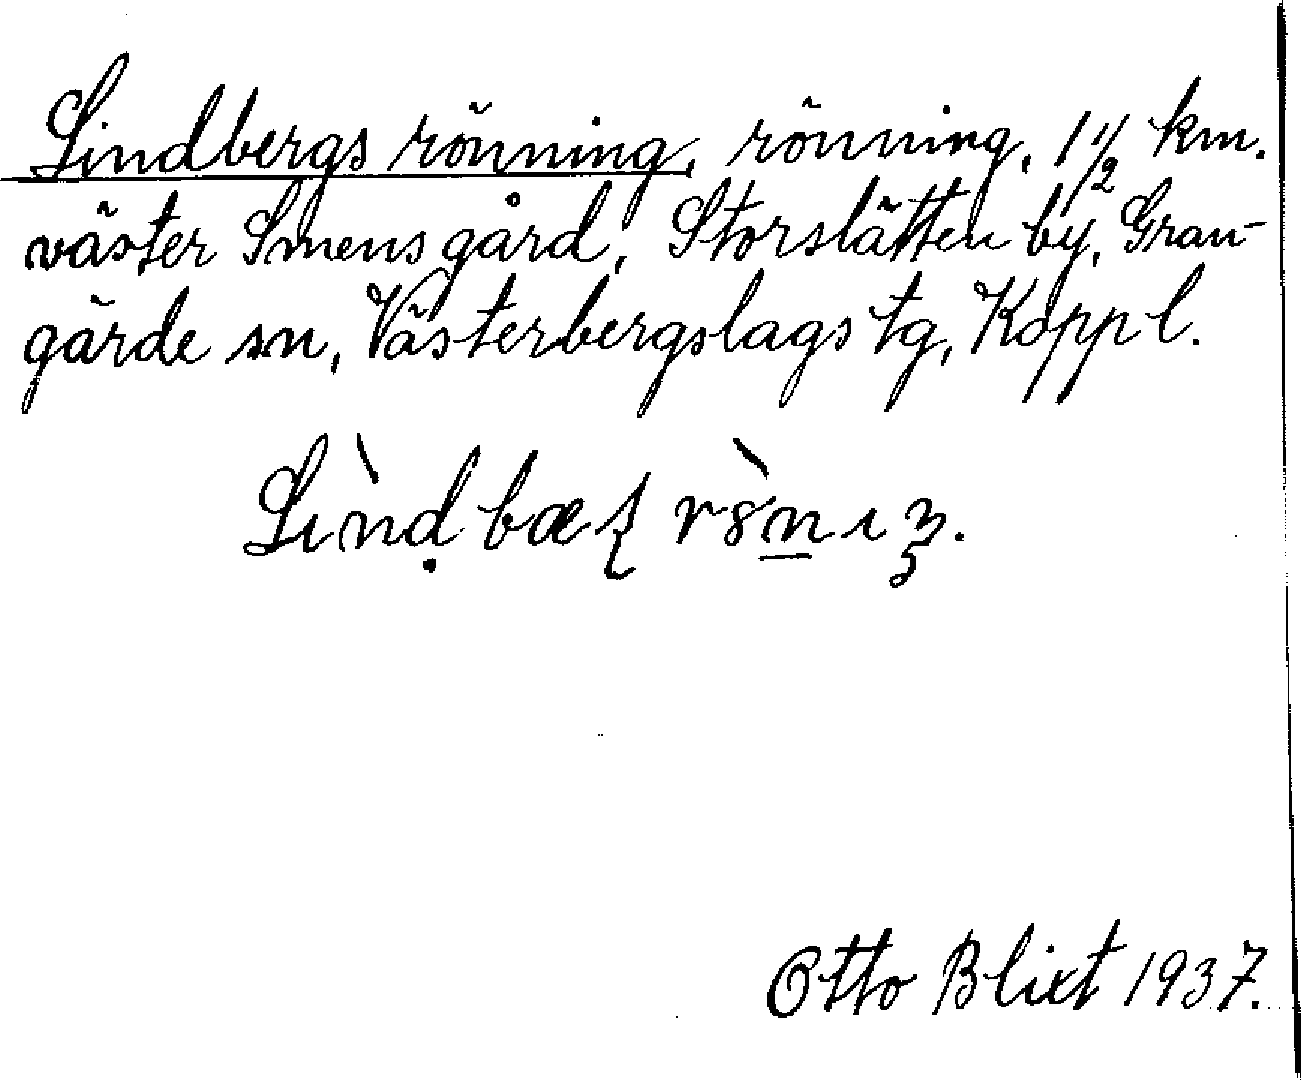 Lindbergs rönning, rönning, 1 1/2 km.
väster Smensgård, Storslätten by, Gran-
gärde sn, Västerbergslags tg, Kopp l.
Otto Blixt 1937.